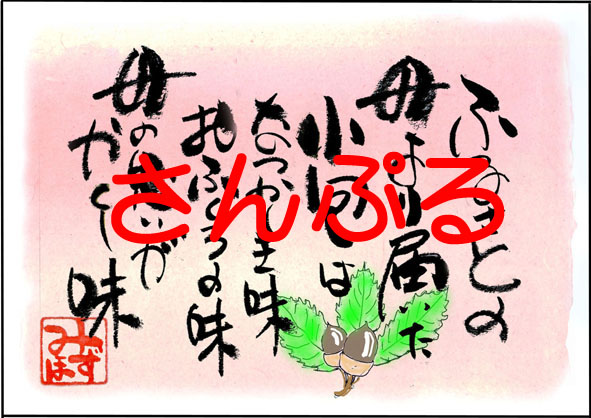 ふるさとの
母より届いた
小包は
なつかしき味
おふくろの味
母のいが
かくし味
さんぷる
みずほ